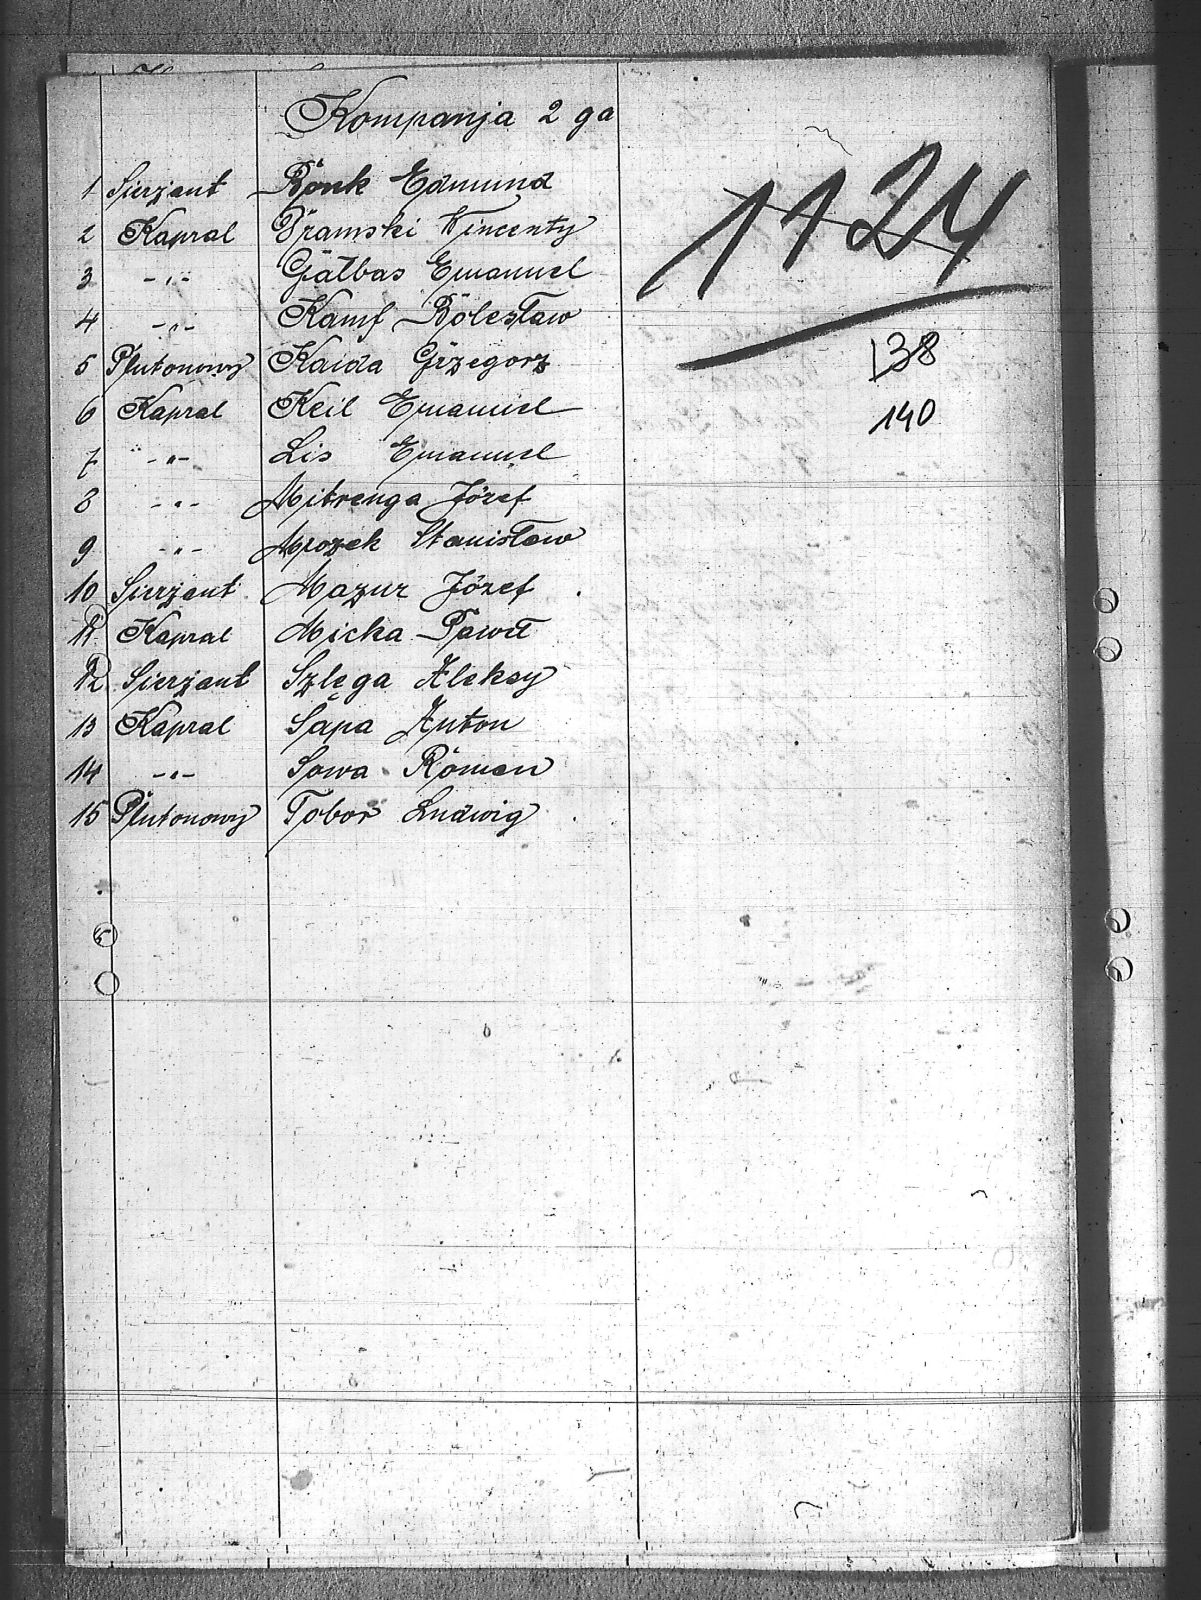 Kompanja 2 ga
1 Sierżant Bonk Edmund
2 Kapral Dramski Wincenty
3 -"- Galbas Emanuel
4 -"- Kamf Bolesław
5 Plutonowy Kaida Grzegorz
6 Kapral Keil Emanuel
7 -"- Lis Emanuel
8 -"- Mitrenga Józef
9 -"- Mrozek Stanisław
10 Sierżant Mazur Józef
11 Kapral Micka Paweł
12 Sierżant Szlęga Aleksy
13 Kapral Sapa Anton
14 -"- Sowa Roman
15 Plutonowy Tobor Ludwig
1124
138
140